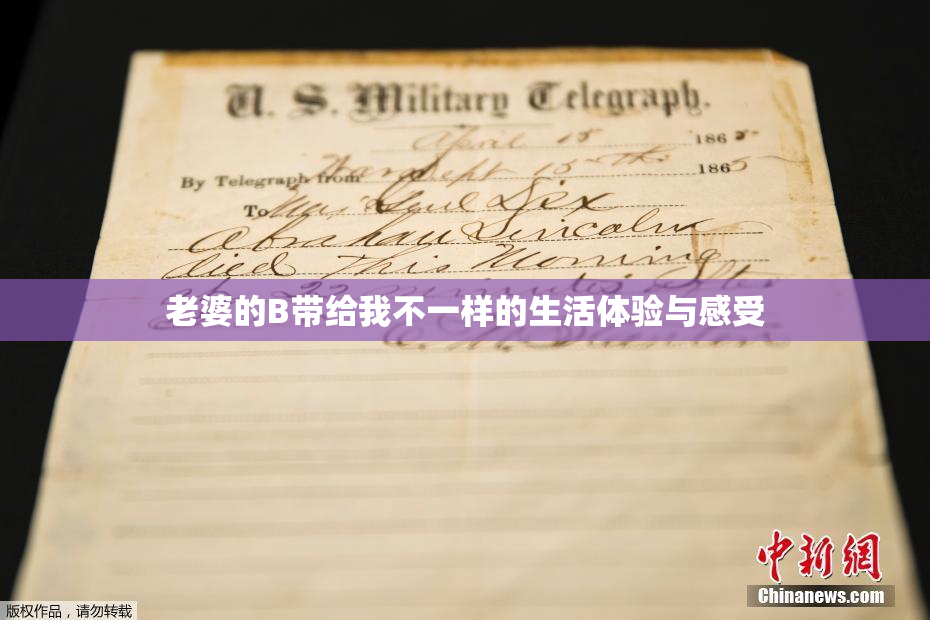 U. S. Military Telegraph.
April 15 1865
By Telegraph from War Dept 15th 1865
To Maj Genl Dix
Abraham Lincoln
died This Morning
at 22 minutes after
老婆的B带给我不一样的生活体验与感受
E. M. Stanton
中新网
Chinanews.com
版权作品，请勿转载